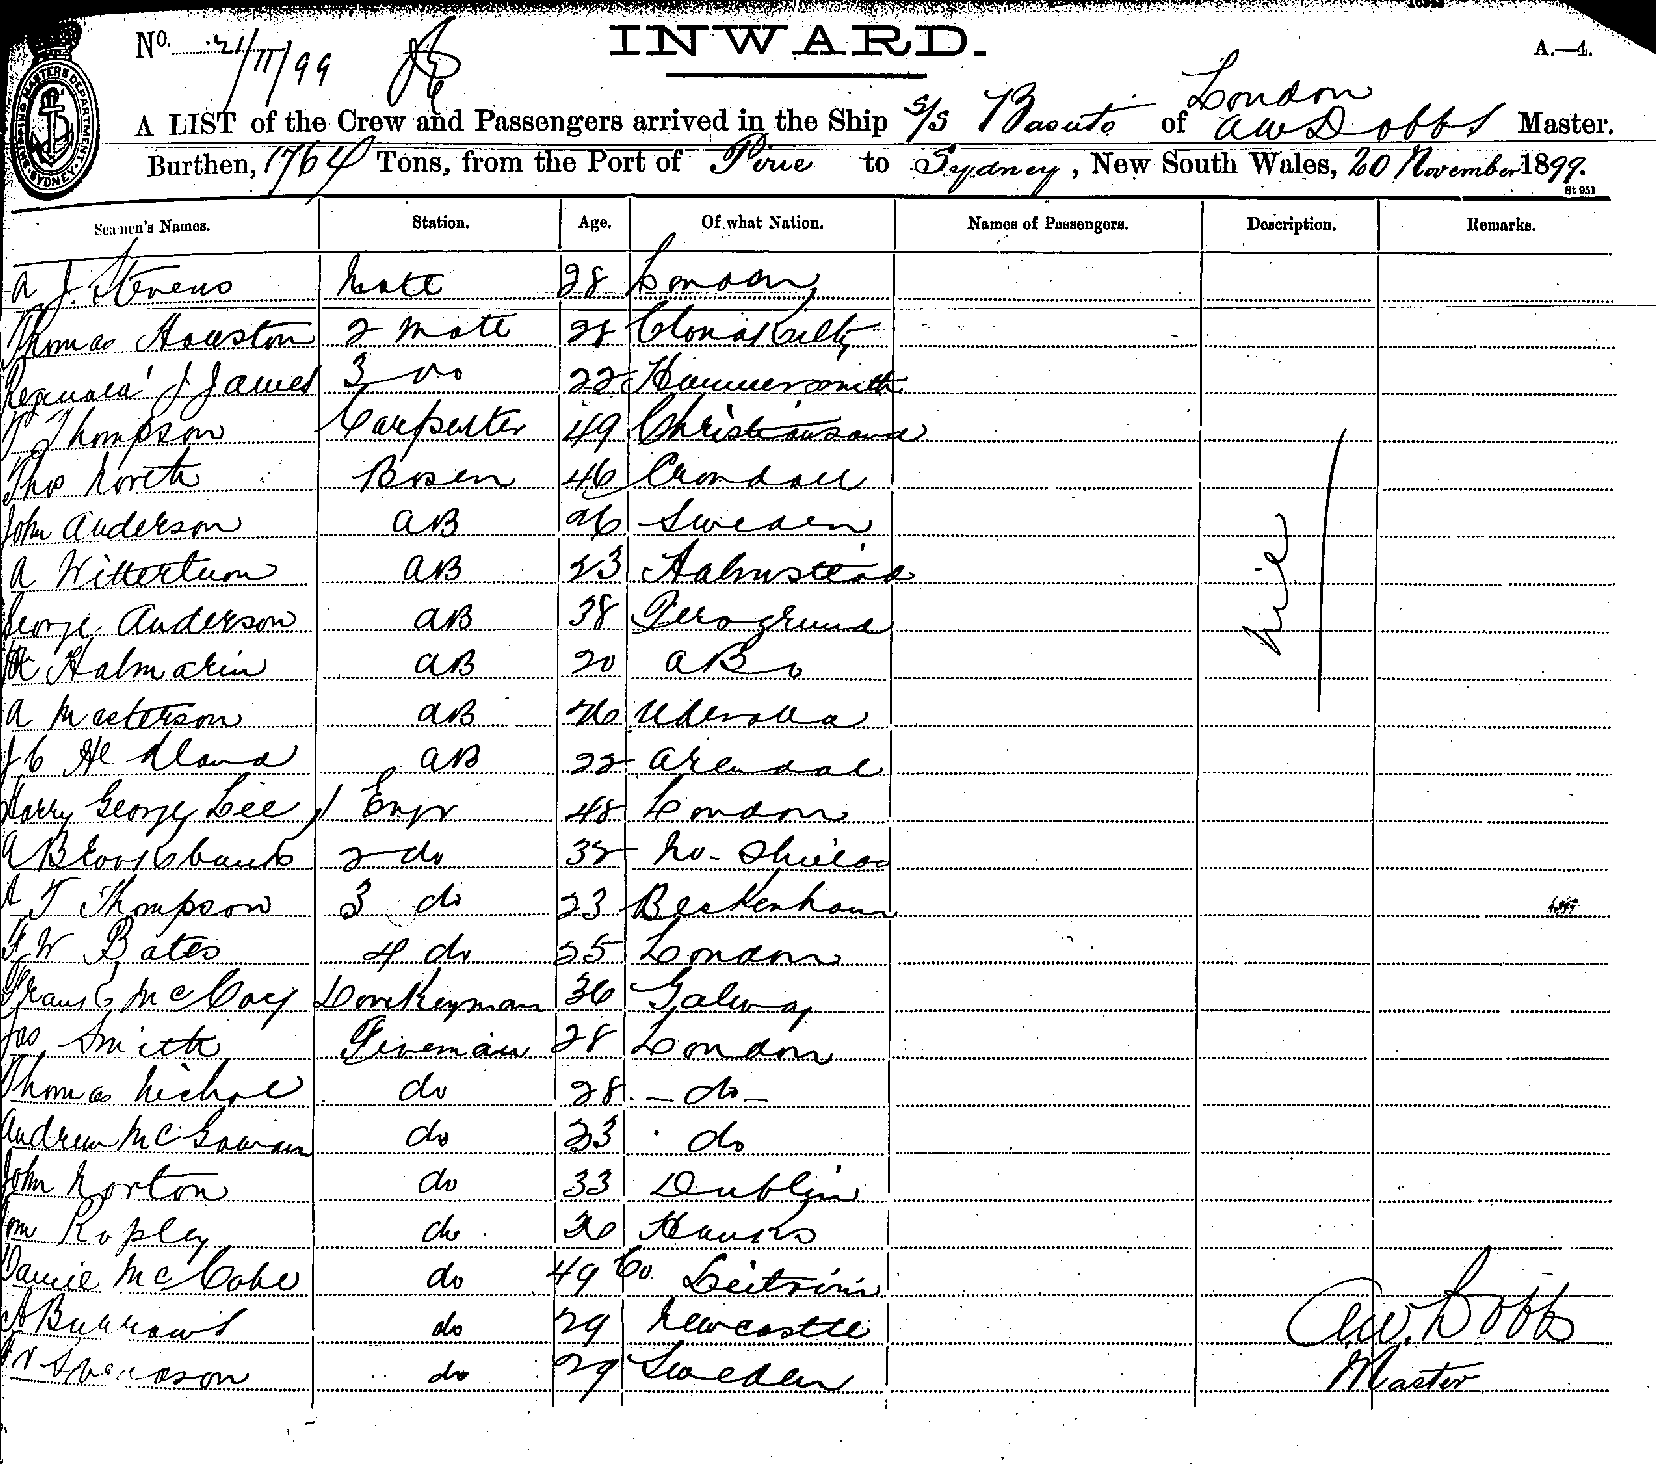 INWARD.
No. 21/11/99
A.—4.
London
A LIST of the Crew and Passengers arrived in the Ship S/S Basuto of A W Dobbs Master.
Burthen, 1764 Tons, from the Port of Pirie to Sydney, New South Wales, 20 November 1899.
Seamen's Names. Station. Age. Of what Nation. Names of Passengers. Description. Remarks.
A J. Stevens Mate 28 London
Thomas Houston 2 Mate 28 Clonakilty
Reginald J James 3 do 22 Hammersmith
Thompson Carpenter 49 Christiansand
Thos North Bosen 46 Crondall
John Anderson AB 26 Sweden
A AB 23 Halmstead
George Anderson AB 38
Halmarin AB 20 Abo
A Masterson AB 26
AB 22 Arendal
Harry George Lee 1 Engr 48 London
A Brooksbank 2 do 32 No. Shields
A T Thompson 3 do 23 Beckenham
F W Bates 4 do 25 London
Francis McCoy Donkeyman 36 Galway
Jas Smith Fireman 28 London
Thomas Nichol do 28 - do -
Andrew McGowan do 23 do
John Norton do 33 Dublin
Ropley do Hants
Daniel McCabe do 49 Co. Leitrim
A Burrows do 29 Newcastle
do 29 Sweden
Nil
A.W. Dobbs
Master